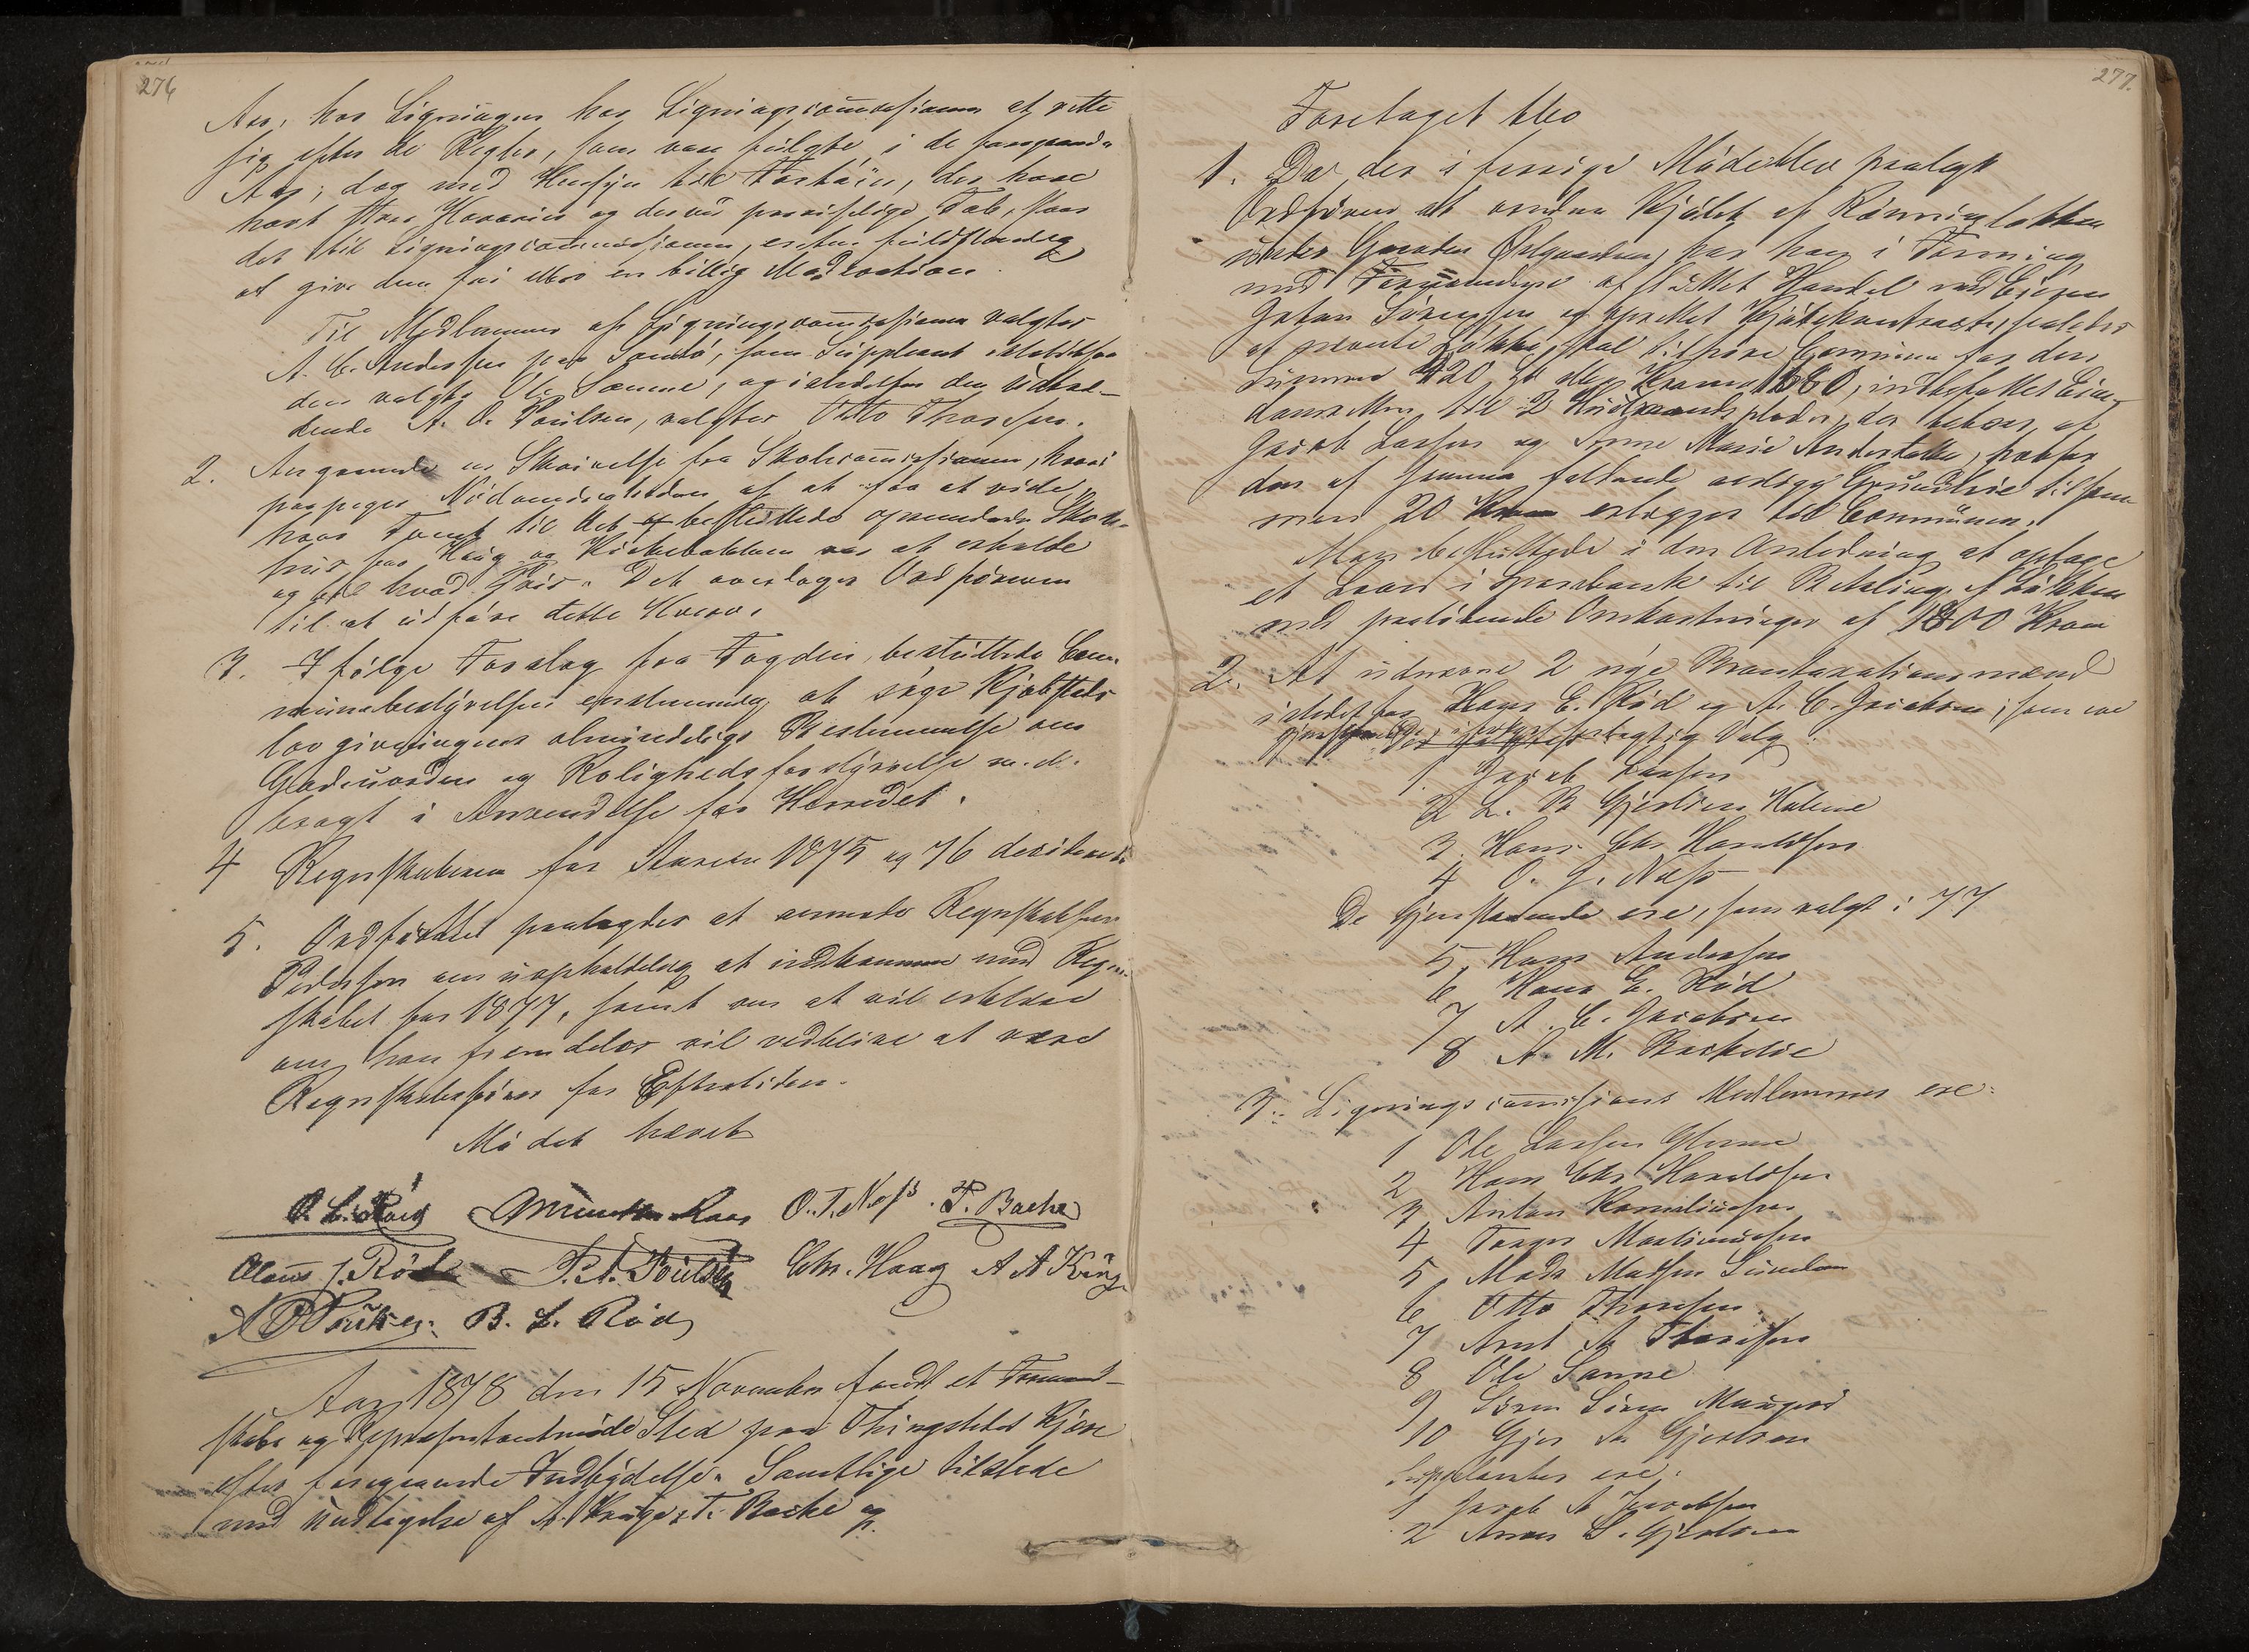 276
Aar, hos Ligningen har Ligningscommissionen at rette
sig efter de Regler, som vare fulgte i de foregaaende
Aar; dog med Hensyn til Fartöier, der have
havt store Havarier og derved Tab, staar
det til Ligningscommissionen,
at give dem en billig Moderation.
Til Medlemmer af Ligningscommissionen valgtes
A. C. Andersen paa som Suppleant istedetfor
den valgte Ole Sanne, og istedetfor den udtræ-
dende A. O. Poulsen, valgtes Otto Thoresen.
2. Angaaende en Skrivelse fra Skolecommissionen, hvori
paapeges Nödvendigheden af at faa at vide,
hvor Tomt til det besluttede Skole-
hus for Haug og Kirkebakken var at erholde
og til hvad Pris. Det overdroges Ordföreren
til at udföre dette Hverv.
3. Ifölge Forslag fra Fogden, besluttede Com-
munebestyrelsen enstemmig at söge Kjöbsteds-
lovgivningens almindelige Bestemmelse om
Gadeuorden og Rolighedsforstyrrelse m. d.
bragt i Anvendelse for Herredet.
4 Regnskaberne for Aarene 1875 og 76 deciderede
5. Ordföreren paalagdes at anmode Regnskabsförer
Pedersen om uopholdelig at indkomme med Regn-
skabet for 1877, samt om at vil erklære
om han fremdeles vil vedblive at være
Regnskabsförer for Eftertiden.
Mödet hævet
O. L. Röed Amundsen Kaas O. T. Næss. T. Bache
Olaus J. Röd P. A. Poulsen Chr. Haag A A Krüge
A O Poulsen. B. L. Röd
Aar 1878 den 15 November fandt et Formand-
skabs og Repræsentantmöde Sted paa Thingstedet Kjære
efter foregaaende Indbydelse. Samtlige tilstede
med Undtagelse af A. Krüge, T. Bache og
277.
Foretaget blev
1. Da det i forrige Möde blev paalagt
Ordföreren at ordne Kjöbet af Rönningløkken
under Gaarden Östgaarden, har han i Forening
med Formændene afsluttet Handel med Eieren
Johan Sörensen og oprettet Kjöbekontract, saaledes
at nævnte Løkke skal tilhøre Communen for den
Summa 420 Spd eller Kroner 1680, indbefattet Eien-
domsretten til 2 Husmandspladse, der beboes af
Jacob Larsen og Anne Marie Andersdatter, hvorfor
den af samme faldende aarlige Grundleie tilsam-
men 20 Kroner erlægges til Communen.
Man besluttede i den Anledning at optage
et Laan i Sparebank til Betaling af Løkken
med paalöbende Omkostninger af 1800 Kroner
2. At udnævne 2 nye Branttaxationsmænd
istedetfor Hans E. Röd og A. C. Jacobsen, som ere
Valg.
1 Jacob Larsen
2 L. B Gjertsen Halvne
3. Hans Chr. Haraldsen
4 O. J. Næss
De Gjenstaaende ere, som valgt i 77
5. Hans Andersen
6 Hans E. Röd
7 A. C. Jacobsen
8 A. M. Backelie
3. Ligningscommissions Medlemmer ere:
1 Ole Larsen Glenne
2 Hans Chr. Haraldsen
3 Anton Korneliussen
4 Torger Martinussen
5 Mads Madsen Sundene
6 Otto Thoresen
7 Arnt A. Thoresen
8 Ole Sanne
9 Sören Sörensen
10 Gjer A. Gjertsen
Suppleanter ere:
1 Jacob A. Jacobsen
2 Anders L. Gjertsen